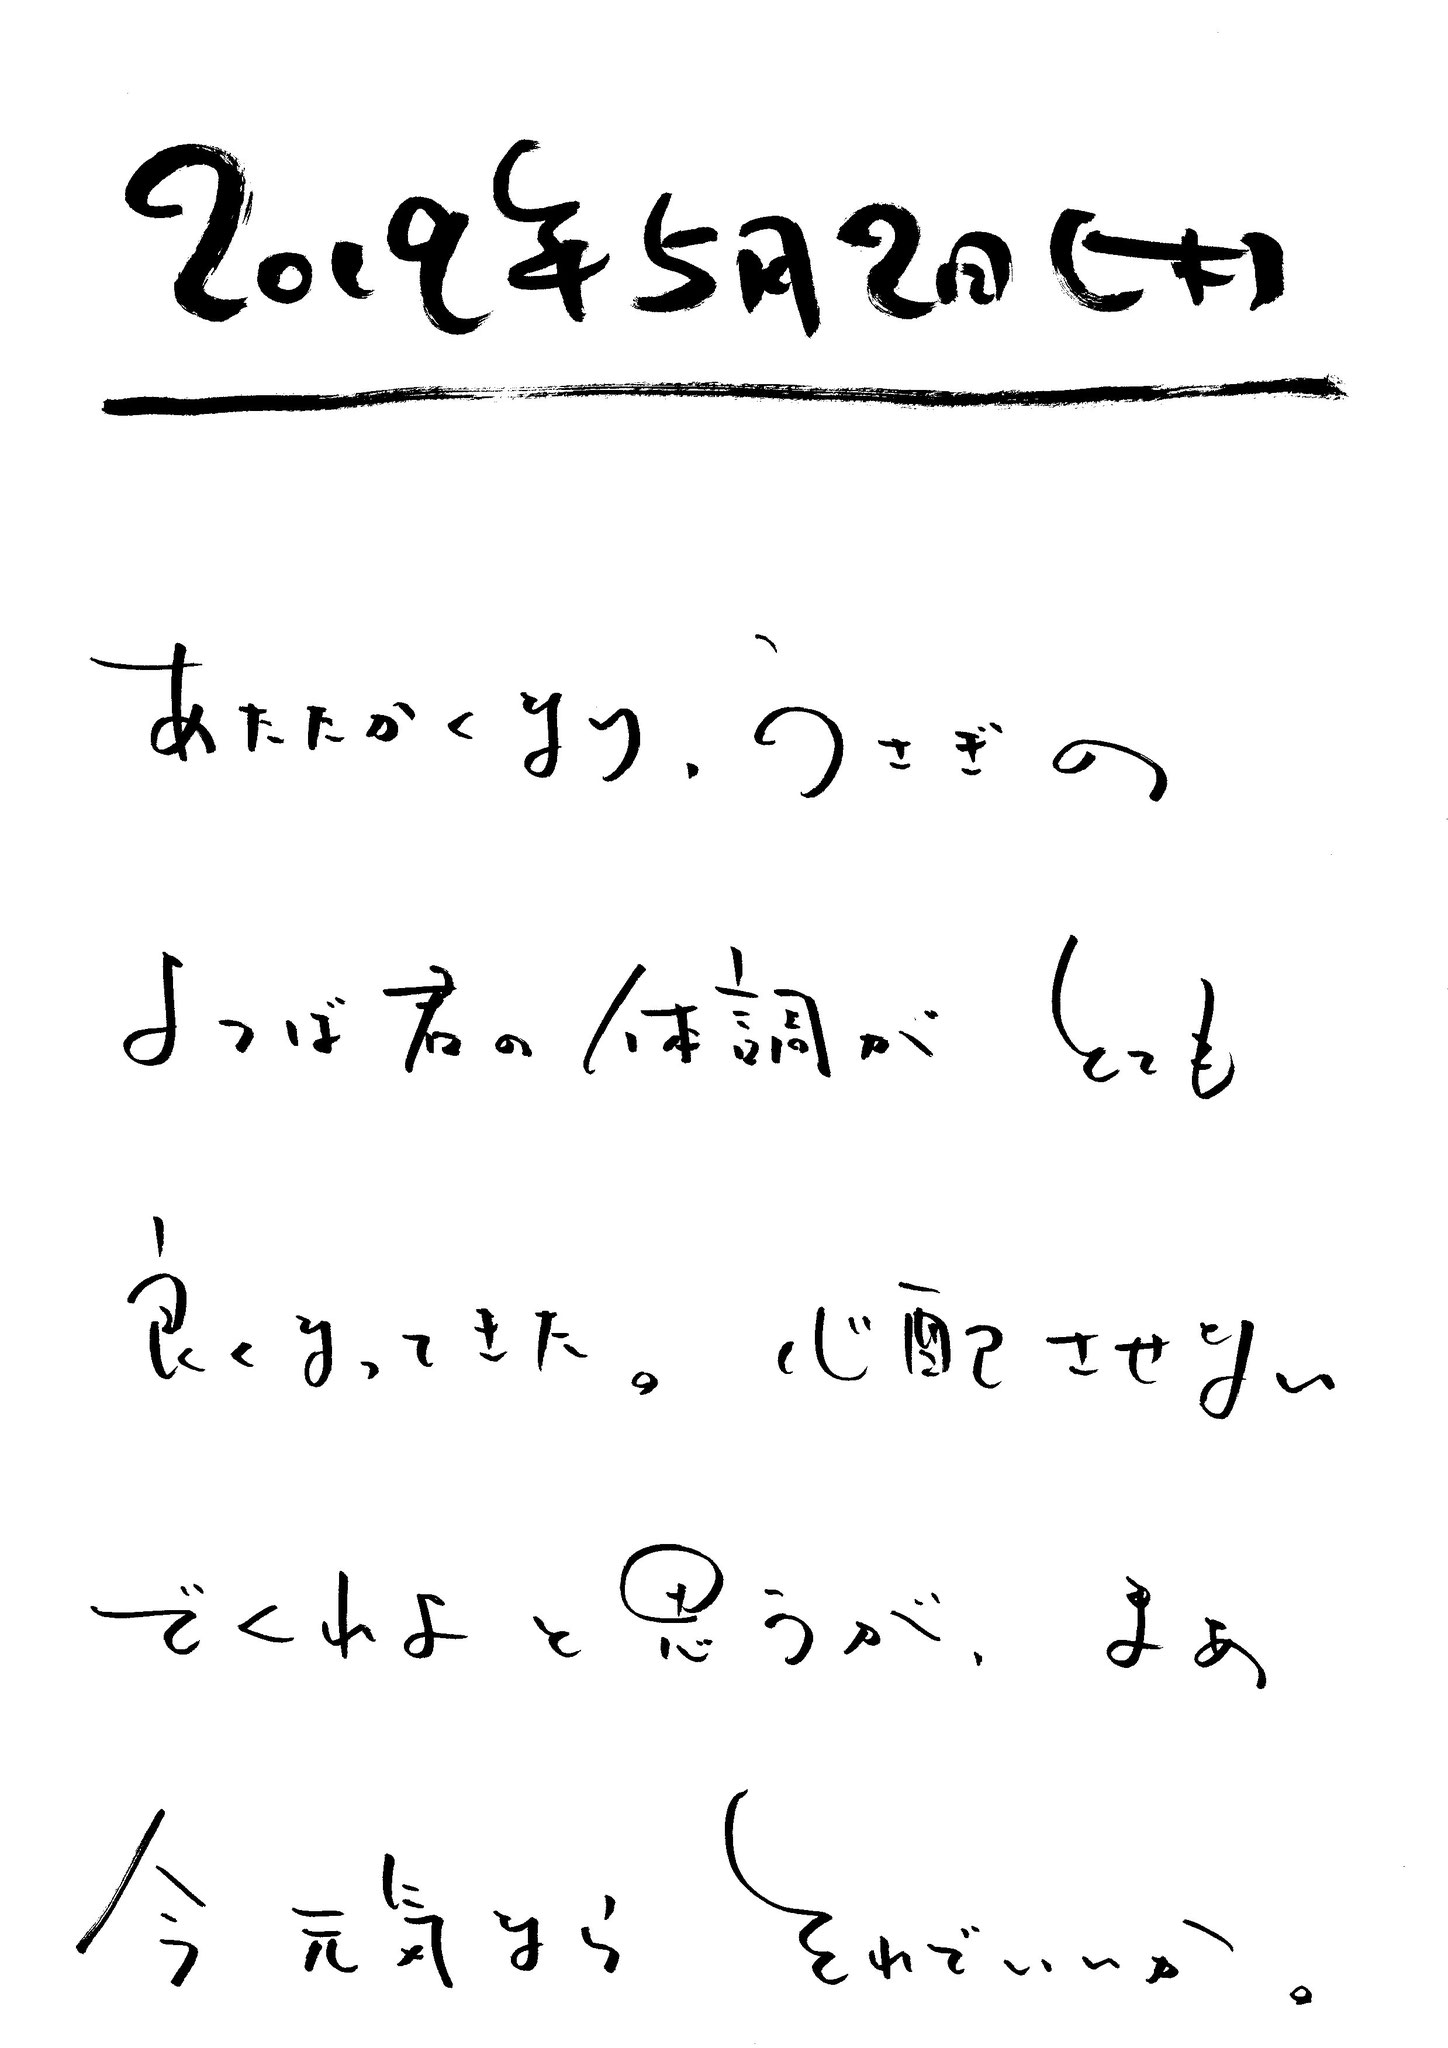 2019年5月2日(木)
あたたかくなり、うさぎの
よつば君の体調がとても
良くなってきた。心配させない
でくれよと思うが、まぁ
今元気ならそれでいいか。